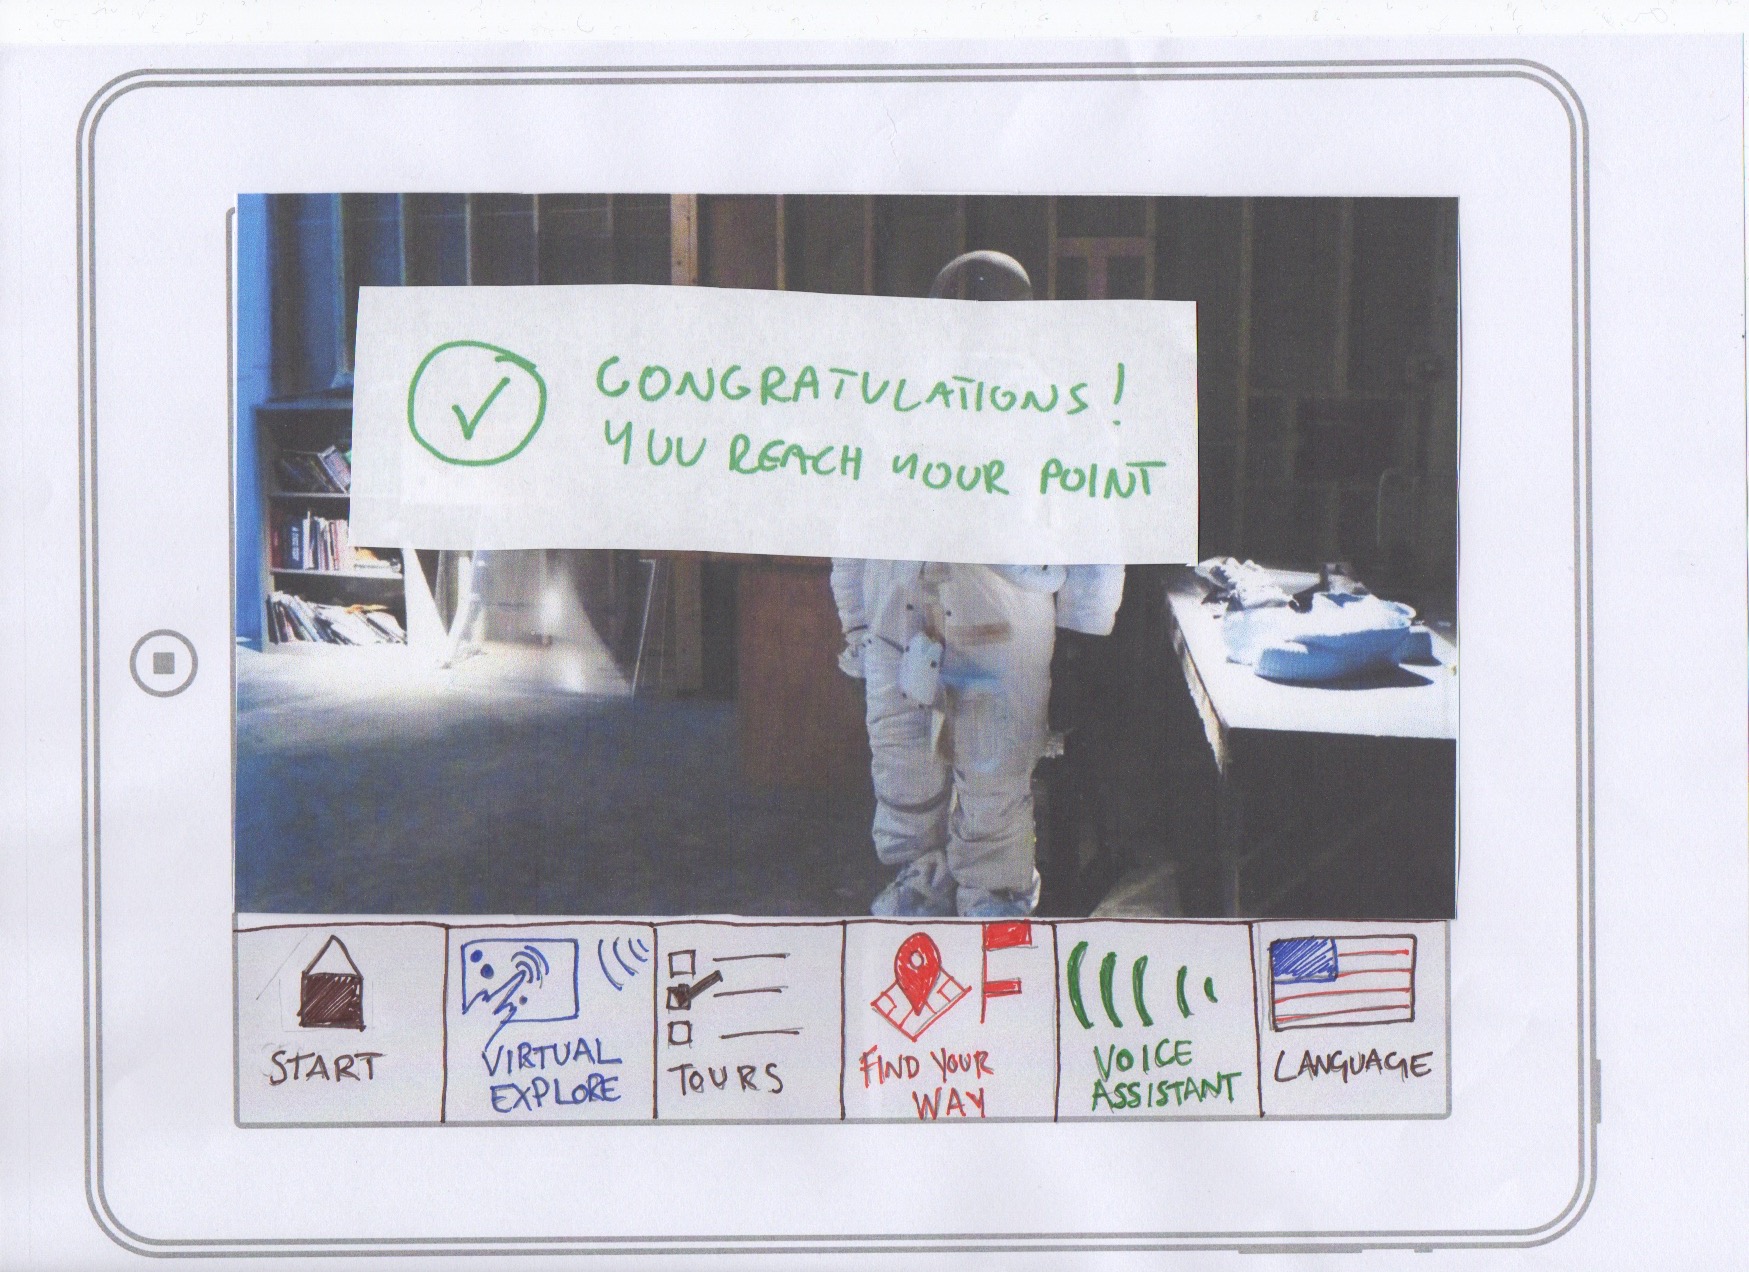 CONGRATULATIONS!
YUU REACH YOUR POINT
START
VIRTUAL
EXPLORE
TOURS
FIND YOUR
WAY
VOICE
ASSISTANT
LANGUAGE